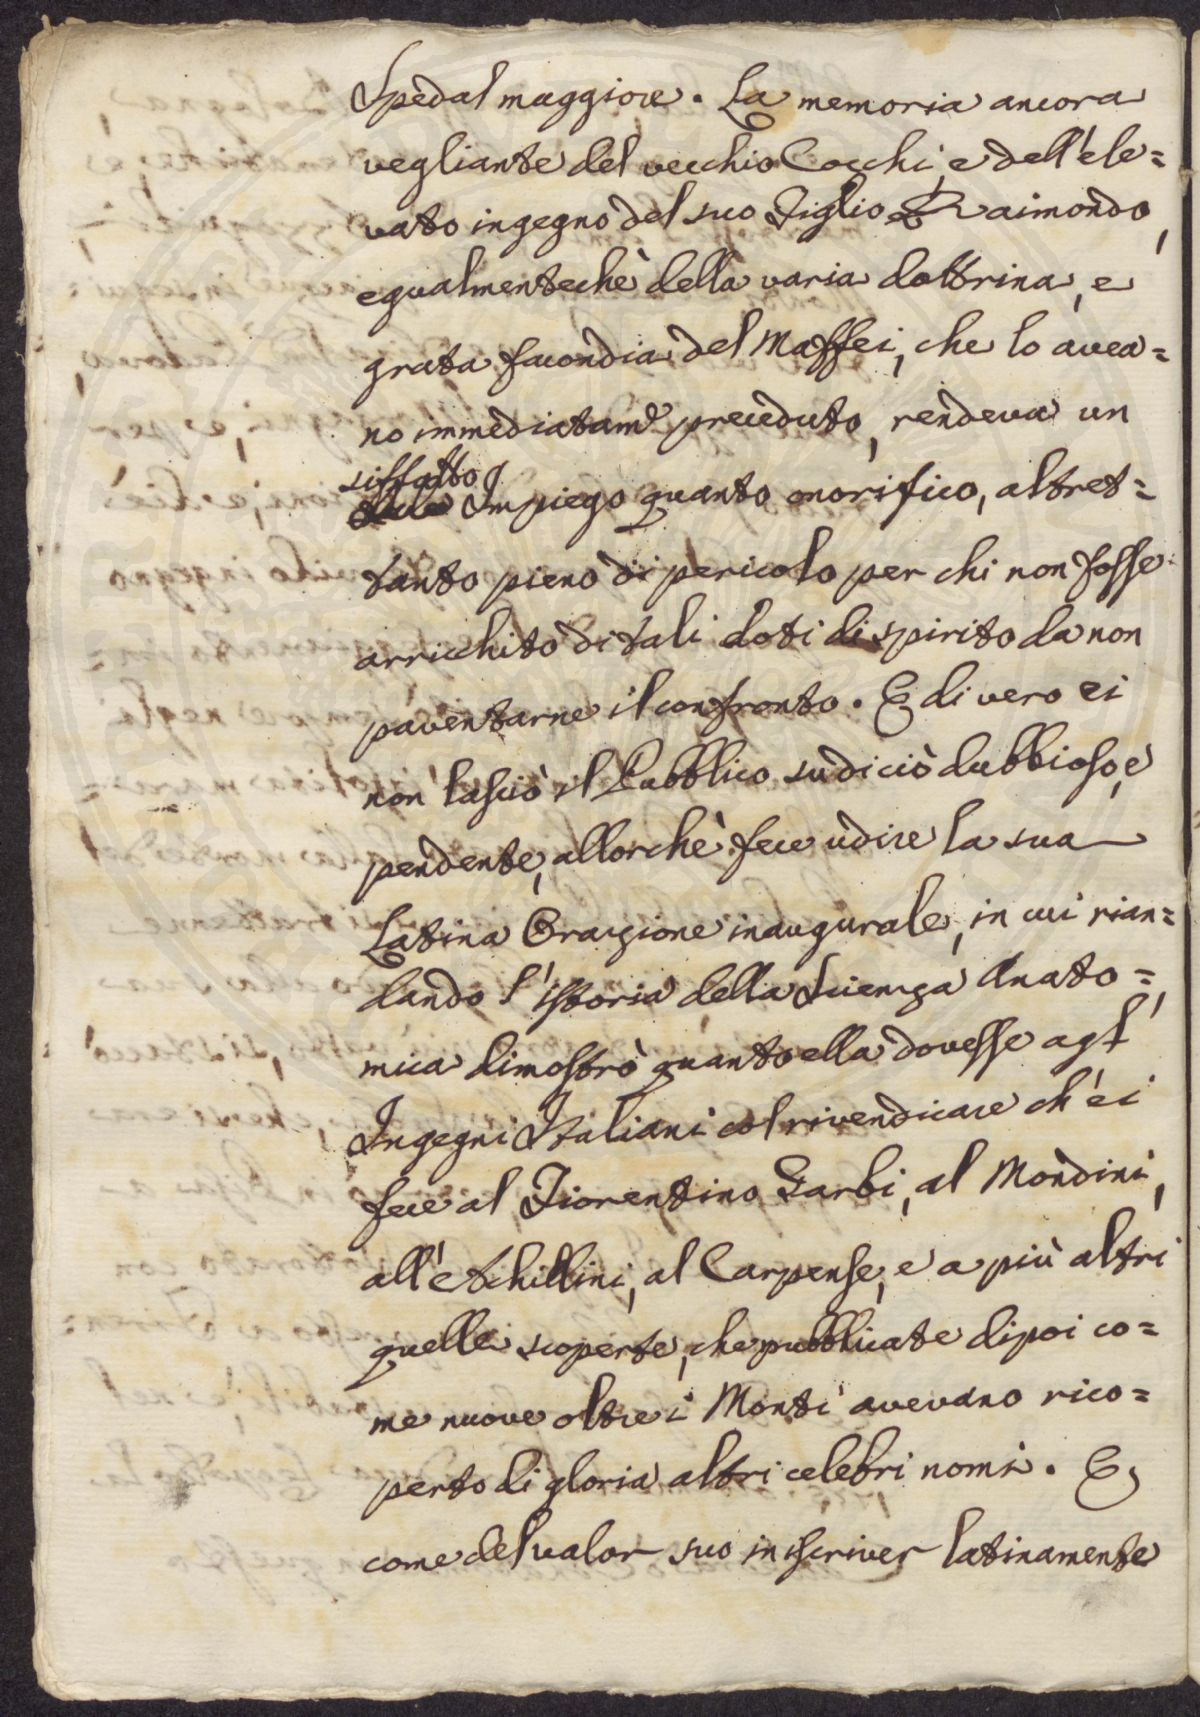 Spedal maggiore. La memoria ancora
vegliante del vecchio Cocchi, e dell'ele=
vato ingegno del suo Figlio Raimondo,
egualmentechè della varia dottrina, e
grata facondia del Maffei, che lo avea=
no immediatam.e preceduto, rendeva un
siffatto
Impiego quanto onorifico, altret=
tanto pieno di pericolo per chi non fosse
arricchito di tali doti di spirito da non
paventarne il confronto. E di vero ei
non lasciò il Pubblico sudiciò dubbioso, e
pendente, allorchè fece udire la sua
Latina Orazione inaugurale, in cui rian=
dando l'istoria della Scienza Anato=
mica dimostrò quanto ella dovesse agl'
Ingegni Italiani col rivendicare ch'ei
fece al Fiorentino Garbi, al Mondini,
all'Achillini, al Carpense, e a più altri
quelle scoperte, che pubblicate dipoi co=
me nuove oltre i Monti avevano rico=
perto di gloria altri celebri nomi. E
come del valor suo in iscriver latinamente